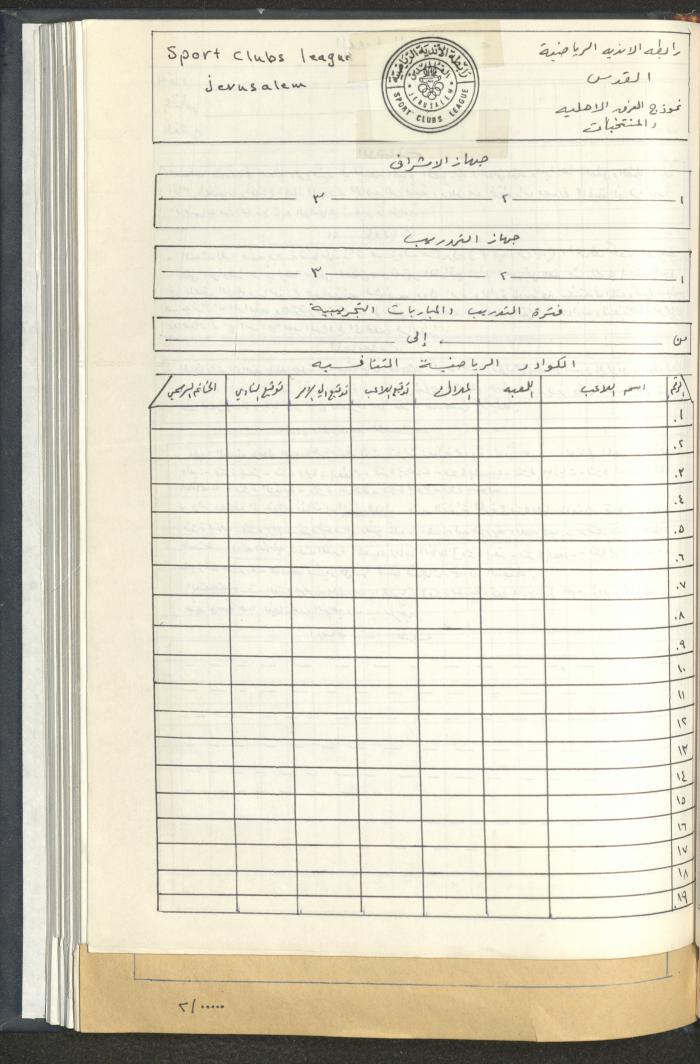 رابطه الانديه الرياضية
القدس
نموذج الفرق الاهليه
والمنتخبات
Sport Clubs league
Jerusalem
رابطة الأندية الرياضية
القدس
JERUSALEM
SPORT CLUBS LEAGUE
جهاز الاشراف
١ ـ ٢ ـ ٣ ـ
جهاز التدريب
١ ـ ٢ ـ ٣ ـ
فترة التدريب والمباريات التجريبية
من ـ إلى ـ
الكوادر الرياضية التنافسيه
الرقم اسم اللاعب اللعبه الميلاد توقيع اللاعب توقيع ولي الامر توقيع النادي الخاتم الرسمي
١.
٢.
٣.
٤.
٥.
٦.
٧.
٨.
٩.
١٠
١١
١٢
١٣
١٤
١٥
١٦
١٧
١٨
١٩.
٢/.....